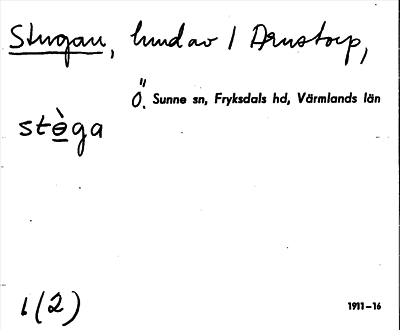 Stugan, hmd av 1 Arnstorp,
Ö. Sunne sn, Fryksdals hd, Värmlands län
stè̲ga
1(2) 1911–16